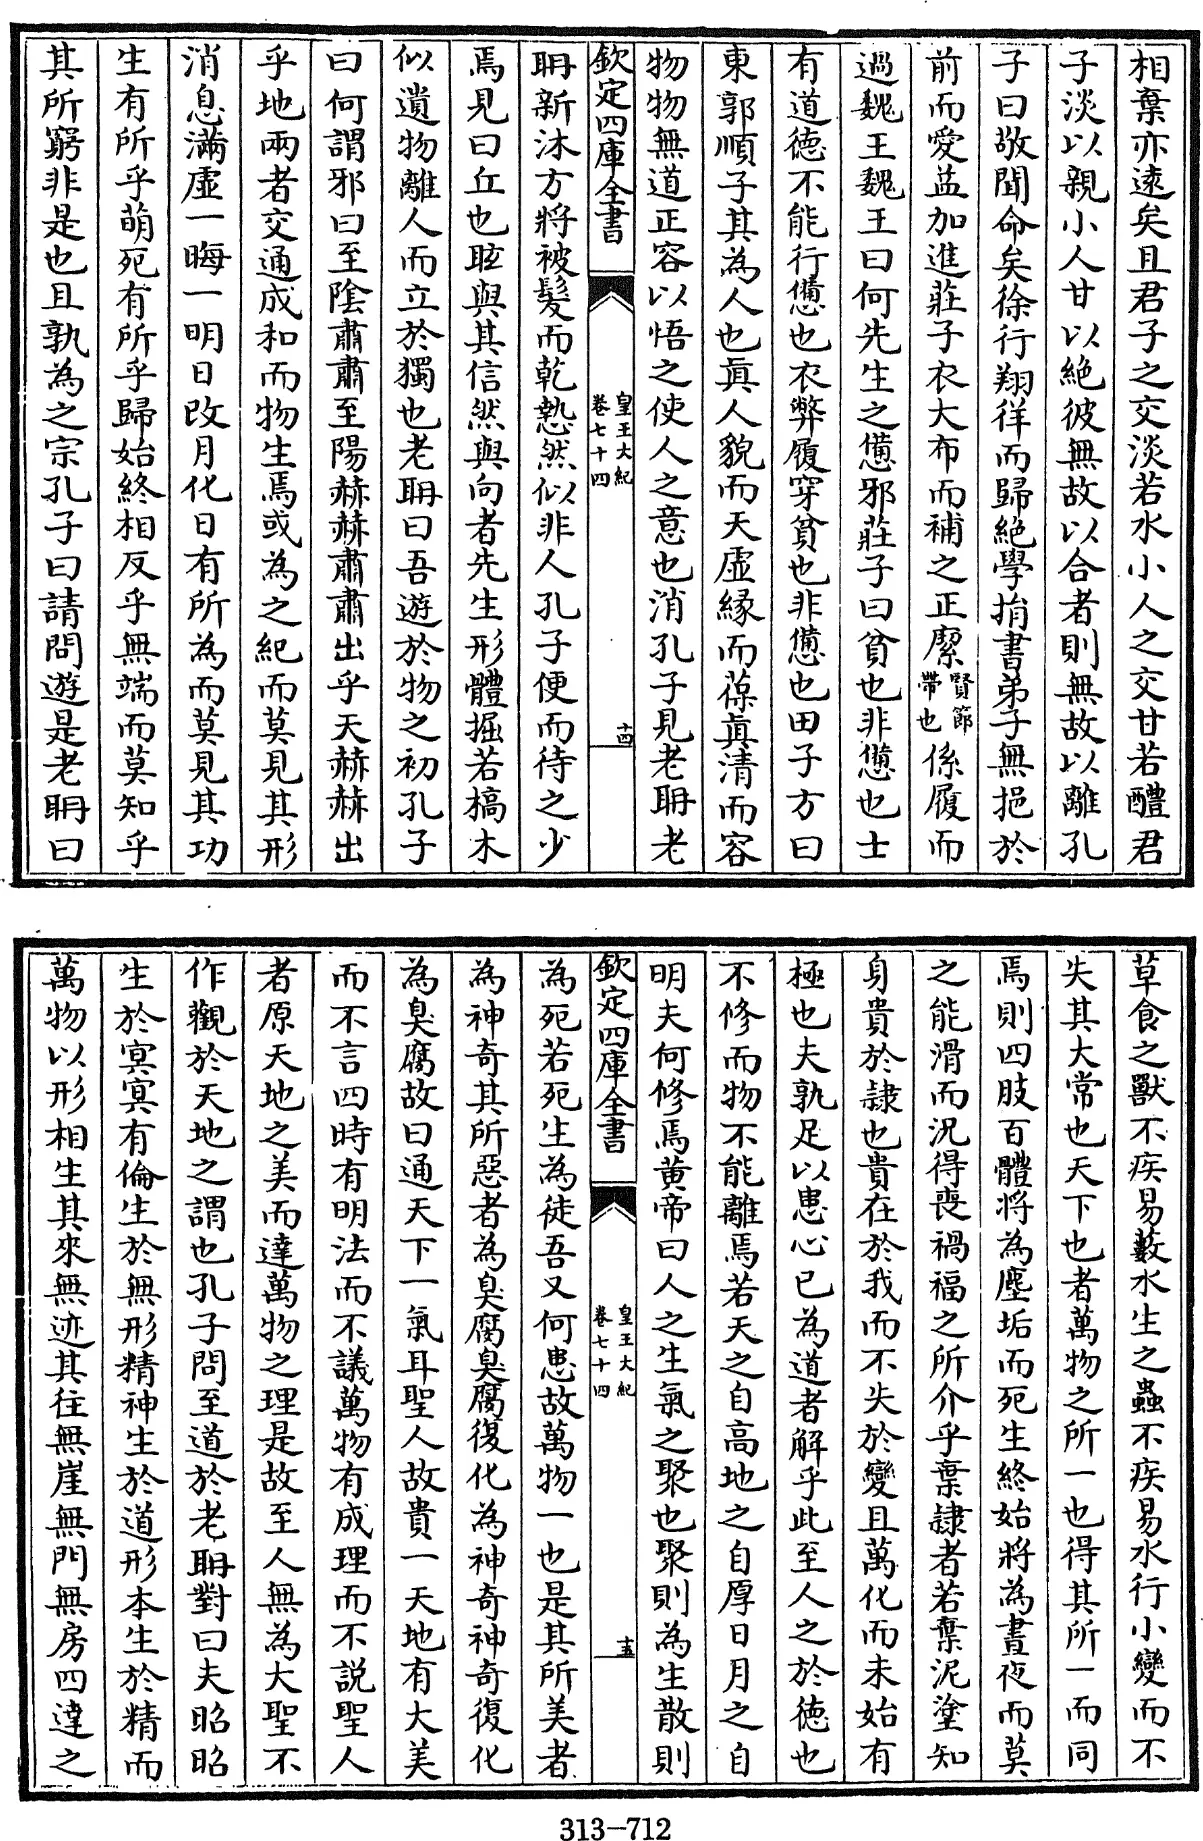 相棄亦逺矣且君子之交淡若水小人之交甘若醴君
子淡以親小人甘以絶彼無故以合者則無故以離孔
子曰敬聞命矣徐行翔徉而歸絶學捐書弟子無挹於
前而愛益加進莊子衣大布而補之正緳賢節帶也係履而
過魏王魏王曰何先生之憊邪莊子曰貧也非憊也士
有道德不能行憊也衣弊履穿貧也非憊也田子方曰
東郭順子其為人也真人貌而天虛緣而葆真清而容
物物無道正容以悟之使人之意也消孔子見老聃老
欽定四庫全書
皇王大紀
卷七十四
十四
聃新沐方將被髮而乾慹然似非人孔子便而待之少
焉見曰丘也眩與其信然與向者先生形體掘若槁木
似遺物離人而立於獨也老聃曰吾遊於物之初孔子
曰何謂邪曰至陰肅肅至陽赫赫肅肅出乎天赫赫出
乎地兩者交通成和而物生焉或為之紀而莫見其形
消息滿虛一晦一明日改月化日有所為而莫見其功
生有所乎萌死有所乎歸始終相反乎無端而莫知乎
其所窮非是也且孰為之宗孔子曰請問遊是老聃曰
草食之獸不疾易藪水生之蟲不疾易水行小變而不
失其大常也天下也者萬物之所一也得其所一而同
焉則四肢百體將為塵垢而死生終始將為晝夜而莫
之能滑而況得喪禍福之所介乎棄隷者若棄泥塗知
身貴於隷也貴在於我而不失於變且萬化而未始有
極也夫孰足以患心已為道者解乎此至人之於德也
不修而物不能離焉若天之自高地之自厚日月之自
明夫何修焉黄帝曰人之生氣之聚也聚則為生散則
欽定四庫全書
皇王大紀
卷七十四
十五
為死若死生為徒吾又何患故萬物一也是其所美者
為神奇其所惡者為臭腐臭腐復化為神奇神奇復化
為臭腐故曰通天下一氣耳聖人故貴一天地有大美
而不言四時有明法而不議萬物有成理而不説聖人
者原天地之美而達萬物之理是故至人無為大聖不
作觀於天地之謂也孔子問至道於老聃對曰夫昭昭
生於冥冥有倫生於無形精神生於道形本生於精而
萬物以形相生其來無迹其往無崖無門無房四達之
313-712